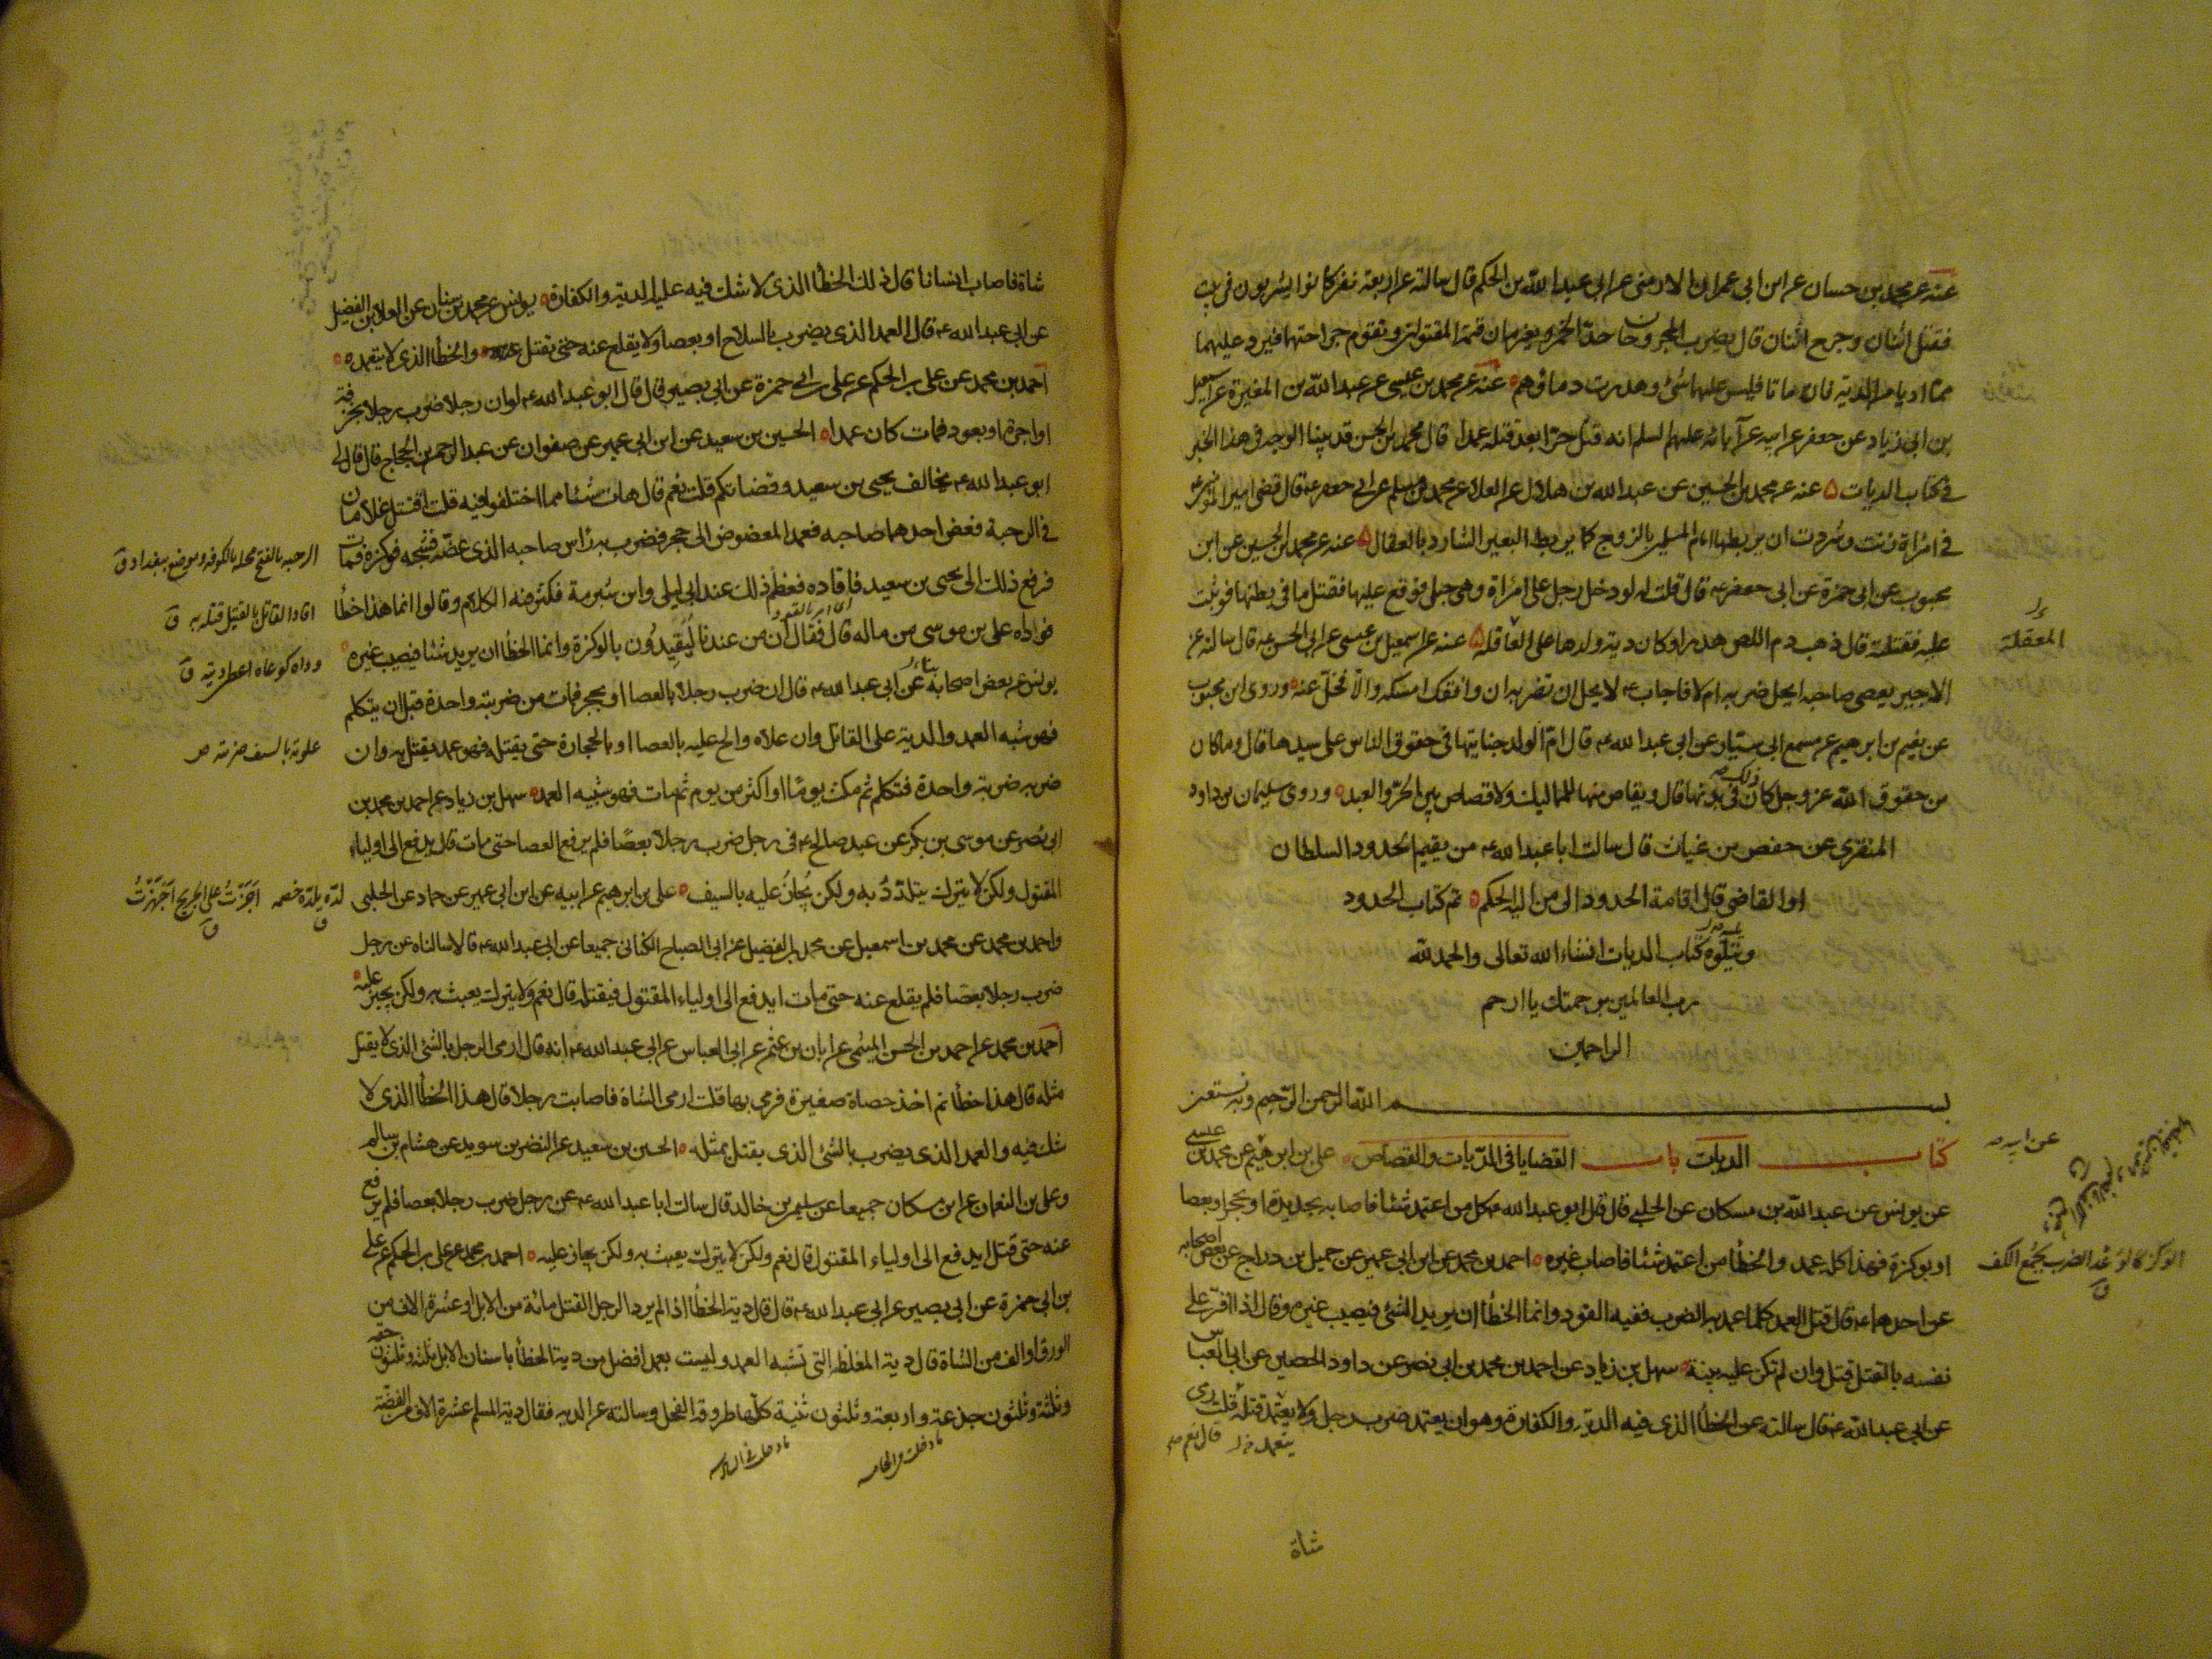 عنه عن محمد بن حسان عن ابن ابى عمران الارمنى عن ابى عبدالله بن الحكم قال سالته عن اربعة نفر كانوا يشربون فى بيت
فقتل اثنان وجرح اثنان قال يضرب المجروحان حد الخمر ويغرمان قيمة المقتولين وتقوم جراحتهما فيرد عليهما
مما اديا من الدية فان ماتا فليس عليهما شئ وهدرت دماؤهم عنه عن محمد بن عيسى عن عبدالله بن المغيرة عن اسمعيل
بن ابى زياد عن جعفر عن ابيه عن آبائه عليهم السلم انه قتل حرا بعبد قتله عمدا قال محمد بن الحسن قد بينا الوجه فى هذا الخبر
فى كتاب الديات عنه عن محمد بن الحسين عن عبدالله بن هلال عن العلاء عن محمد بن مسلم عن ابى جعفر ع قال قضى امير المؤمنين ع
فى امراة زنت وشردت ان يربطها امام المسلمين بالزوج كما يربط البعير الشارد بالعقال عنه عن محمد بن الحسين عن ابن
محبوب عن ابى حمزة عن ابى جعفر ع قال قلت له لو دخل رجل على امراة وهى حبلى فوقع عليها فقتل ما فى بطنها فوثبت
عليه فقتلته قال ذهب دم اللص هدرا وكان دية ولدها على العاقلة عنه عن اسمعيل بن عيسى عن ابى الحسن ع قال سالته عن
المعقلة
الاجير يعصى صاحبه ايحل ضربه ام لا فاجاب ع لا يحل ان تضربه ان وافقك امسكه والا فخل عنه وروى ابن محبوب
عن نعيم بن ابرهيم عن مسمع ابى سيار عن ابى عبدالله ع قال ام الولد جنايتها فى حقوق الناس على سيدها قال وما كان
من حقوق الله عز وجل كان ذلك فى بدنها قال ويقاص منها للمماليك ولا قصاص بين الحر والعبد وروى سليمان بن داود
المنقرى عن حفص بن غياث قال سالت ابا عبدالله ع من يقيم الحدود السلطان
او القاضى قال اقامة الحدود الى من اليه الحكم تم كتاب الحدود
ويتلوه كتاب الديات انشاء الله تعالى والحمد لله
رب العالمين برحمتك يا ارحم
الراحمين
بسم الله الرحمن الرحيم وبه نستعين
كتاب الديات باب القضايا فى الديات والقصاص على بن ابرهيم عن محمد بن عيسى
عن ابيه
عن يونس عن عبدالله بن مسكان عن الحلبى قال قال ابو عبدالله ع كل من اعتمد شيئا فاصابه بحديدة او بحجر او بعصا
او بوكزة فهذا كله عمد والخطأ من اعتمد شيئا فاصاب غيره احمد بن محمد عن ابن ابى عمير عن جميل بن دراج عن بعض اصحابه
الوكز كالوعد الضرب بجمع الكف
عن احدهما ع قال قتل العمد كلما عمد به الضرب ففيه القود وانما الخطأ ان يريد الشئ فيصيب غيره وقال اذا اقر على
نفسه بالقتل قتل وان لم تكن عليه بينة سهل بن زياد عن احمد بن محمد بن ابى نصر عن داود الحصين عن ابى العباس
عن ابى عبدالله ع قال سالته عن الخطأ الذى فيه الدية والكفارة وهو ان يعتمد ضرب رجل ولا يعتمد قتله قلت رمى
يتعمد قال نعم
شاة
شاة فاصاب انسانا قال ذلك الخطأ الذى لا شك فيه عليه الدية والكفارة يونس عن محمد بن سنان عن العلا بن الفضيل
عن ابى عبدالله ع قال العمد الذى يضرب بالسلاح او بعصا ولا يقلع عنه حتى يقتل والخطأ الذى لا يتعمده
احمد بن محمد عن على بن الحكم عن على بن ابى حمزة عن ابى بصير قال قال ابو عبدالله ع لو ان رجلا ضرب رجلا بخزفة
او اجرة او بعود فمات كان عمدا الحسين بن سعيد عن ابن ابى عمير عن صفوان عن عبدالرحمن بن الحجاج قال قال لى
ابو عبدالله ع يخالف يحيى بن سعيد وقضاتكم قلت نعم قال هات شيئا مما اختلفوا فيه قلت اقتتل غلامان
فى الرحبة فعض احدهما صاحبه فعمد المعضوض الى حجر فضرب به راس صاحبه الذى عضه فشجه فوكزه فمات
الرحبه بالفتح محله بالكوفه وموضع ببغداد ق
فرفع ذلك الى يحيى بن سعيد فاقاده فعظم ذلك عند ابى ليلى وابن شبرمة فكثر فيه الكلام وقالوا انما هذا خطأ
اقاد القاتل بالقتيل قتله به ق
فوداه على بن موسى من ماله قال فقال ان من عندنا ليقيدون بالوكزة وانما الخطأ ان يريد شيئا فيصيب غيره
وداه كوعاه اعطى ديته ق
يونس عن بعض اصحابنا عن ابى عبدالله ع قال ان ضرب رجلا بالعصا او بحجر فمات من ضربة واحدة قبل ان يتكلم
فهو شبه العمد والدية على القاتل وان علاه والح عليه بالعصا او بالحجارة حتى يقتله فهو عمد يقتل به وان
علوته بالسيف ضربته ص
ضربه ضربة واحدة فتكلم ثم مكث يوما او اكثر من يوم ثم مات فهو شبه العمد سهل بن زياد عن احمد بن محمد بن
ابى نصر عن موسى بن بكر عن عبد صالح ع فى رجل ضرب رجلا بعصا فلم يرفع العصا حتى مات قال يدفع الى اولياء
المقتول ولكن لا يترك يتلذذ به ولكن يجاز عليه بالسيف على بن ابرهيم عن ابيه عن ابن ابى عمير عن حماد عن الحلبى
اجزت على الجريح اجهزت ق
واحمد بن محمد عن محمد بن اسمعيل عن محمد بن الفضيل عن ابى الصباح الكنانى جميعا عن ابى عبدالله ع قالا سالناه عن رجل
ضرب رجلا بعصا فلم يقلع عنه حتى مات ايدفع الى اولياء المقتول فيقتله قال نعم ولا يترك يعبث به ولكن يجيز عليه
احمد بن محمد عن احمد بن الحسن الميثمى عن ابان بن عثمن عن ابى العباس عن ابى عبدالله ع انه قال ارمى الرجل بالشئ الذى لا يقتل
مثله قال هذا خطأ ثم اخذ حصاة صغيرة فرمى بها قلت ارمى الشاة فاصابت رجلا قال هذا الخطأ الذى لا
شك فيه والعمد الذى يضرب بالشئ الذى يقتل بمثله الحسين بن سعيد عن النضر بن سويد عن هشام بن سالم
وعلى بن النعمان عن ابن مسكان جميعا عن سليمن بن خالد قال سالت ابا عبدالله ع عن رجل ضرب رجلا بعصا فلم يرفع
عنه حتى قتل ايدفع الى اولياء المقتول قال نعم ولكن لا يترك يعبث به ولكن يجاز عليه احمد بن محمد عن على بن الحكم عن على
بن ابى حمزة عن ابى بصير عن ابى عبدالله ع قال قال دية الخطأ اذا لم يرد الرجل القتل مائة من الابل او عشرة الاف من
الورق او الف من الشاة قال دية المغلظة التى تشبه العمد وليست بعمد افضل من دية الخطأ باسنان الابل ثلثة وثلثون حقه
وثلثة وثلثون جذعة واربعة وثلثون ثنية كلها طروقة الفحل وسالته عن الدية فقال دية المسلم عشرة الاف من الفضة